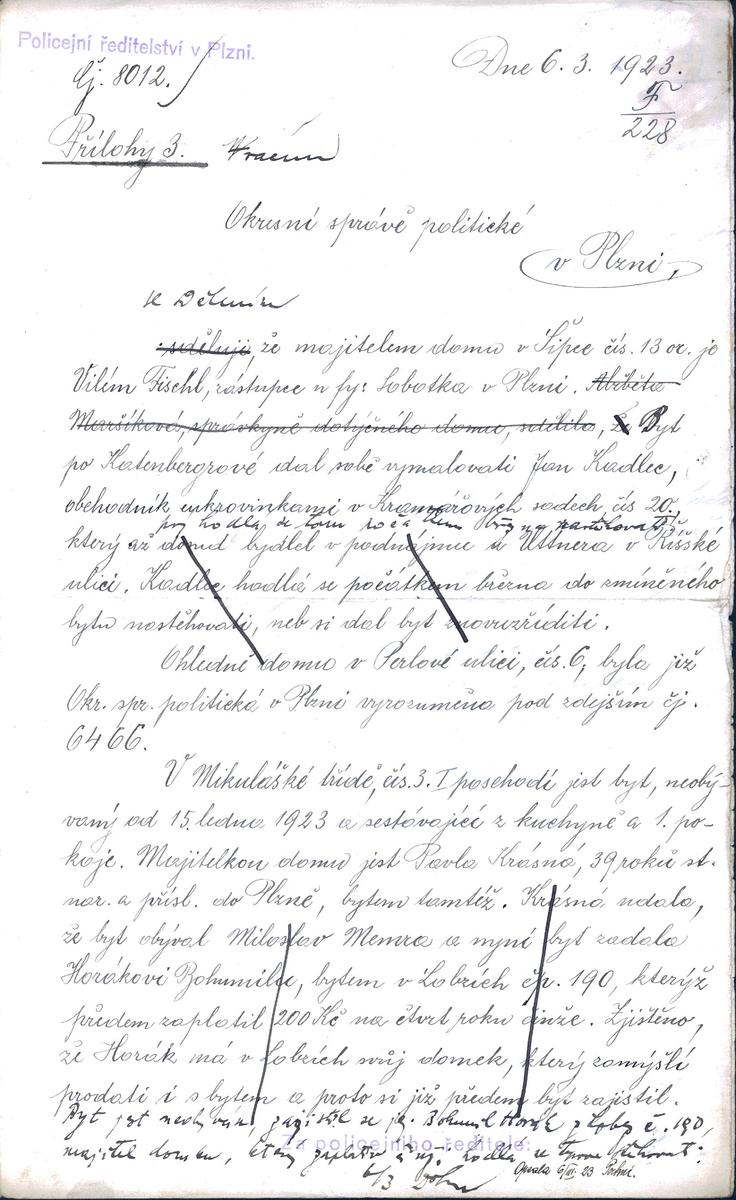 Policejní ředitelství v Plzni.
Dne 6. 3. 1923.
Čj. 8012.
F
228
Přílohy 3. Vracím
Okresní správě politické
v Plzni,
k
sděluji, že majitelem domu v Šipce čís. 13 or. je
Vilém Fischl, zástupce u fy: Sobotka v Plzni. Alžběta
Maršíková, správkyně dotyčného domu, sdělila, že Byt
po Katenbergrové dal sobě vymalovati Jan Kadlec,
obchodník cukrovinkami v Kramářových sadech, čís 20.
prý hodlá se tam
který až dosud bydlel v podnájmu u Uttnera v Říšské
ulici. Kadlec hodlá se počátkem března do zmíněného
bytu nastěhovati, neb si dal byt znovuzříditi.
Ohledně domu v Perlové ulici, čís. 6, byla již
Okr. spr. politická v Plzni vyrozuměna pod zdejším čj.
6466.
V Mikulášské třídě, čís. 3. I poschodí jest byt, neobý-
vaný od 15. ledna 1923 a sestávající z kuchyně a 1. po-
koje. Majitelkou domu jest Pavla Krásná, 39 roků st.
nar. a přísl. do Plzně, bytem tamtéž. Krásná udala,
že byt obýval Miloslav Memra a nyní byt zadala
Horákovi Bohumilu, bytem v Lobzích čp. 190, kterýž
předem zaplatil 200 Kč na čtvrt roku činže. Zjištěno,
že Horák má v Lobzích svůj domek, který zamýšlí
prodati i s bytem a proto si již předem byt zajistil.
Byt jest neobýván, zajistil si jej Bohumil Horák z Lobez č. 190,
majitel domku, který zaplatil a hodlá se
Za policejního ředitele:
6/3
Opsala 6/III. 23